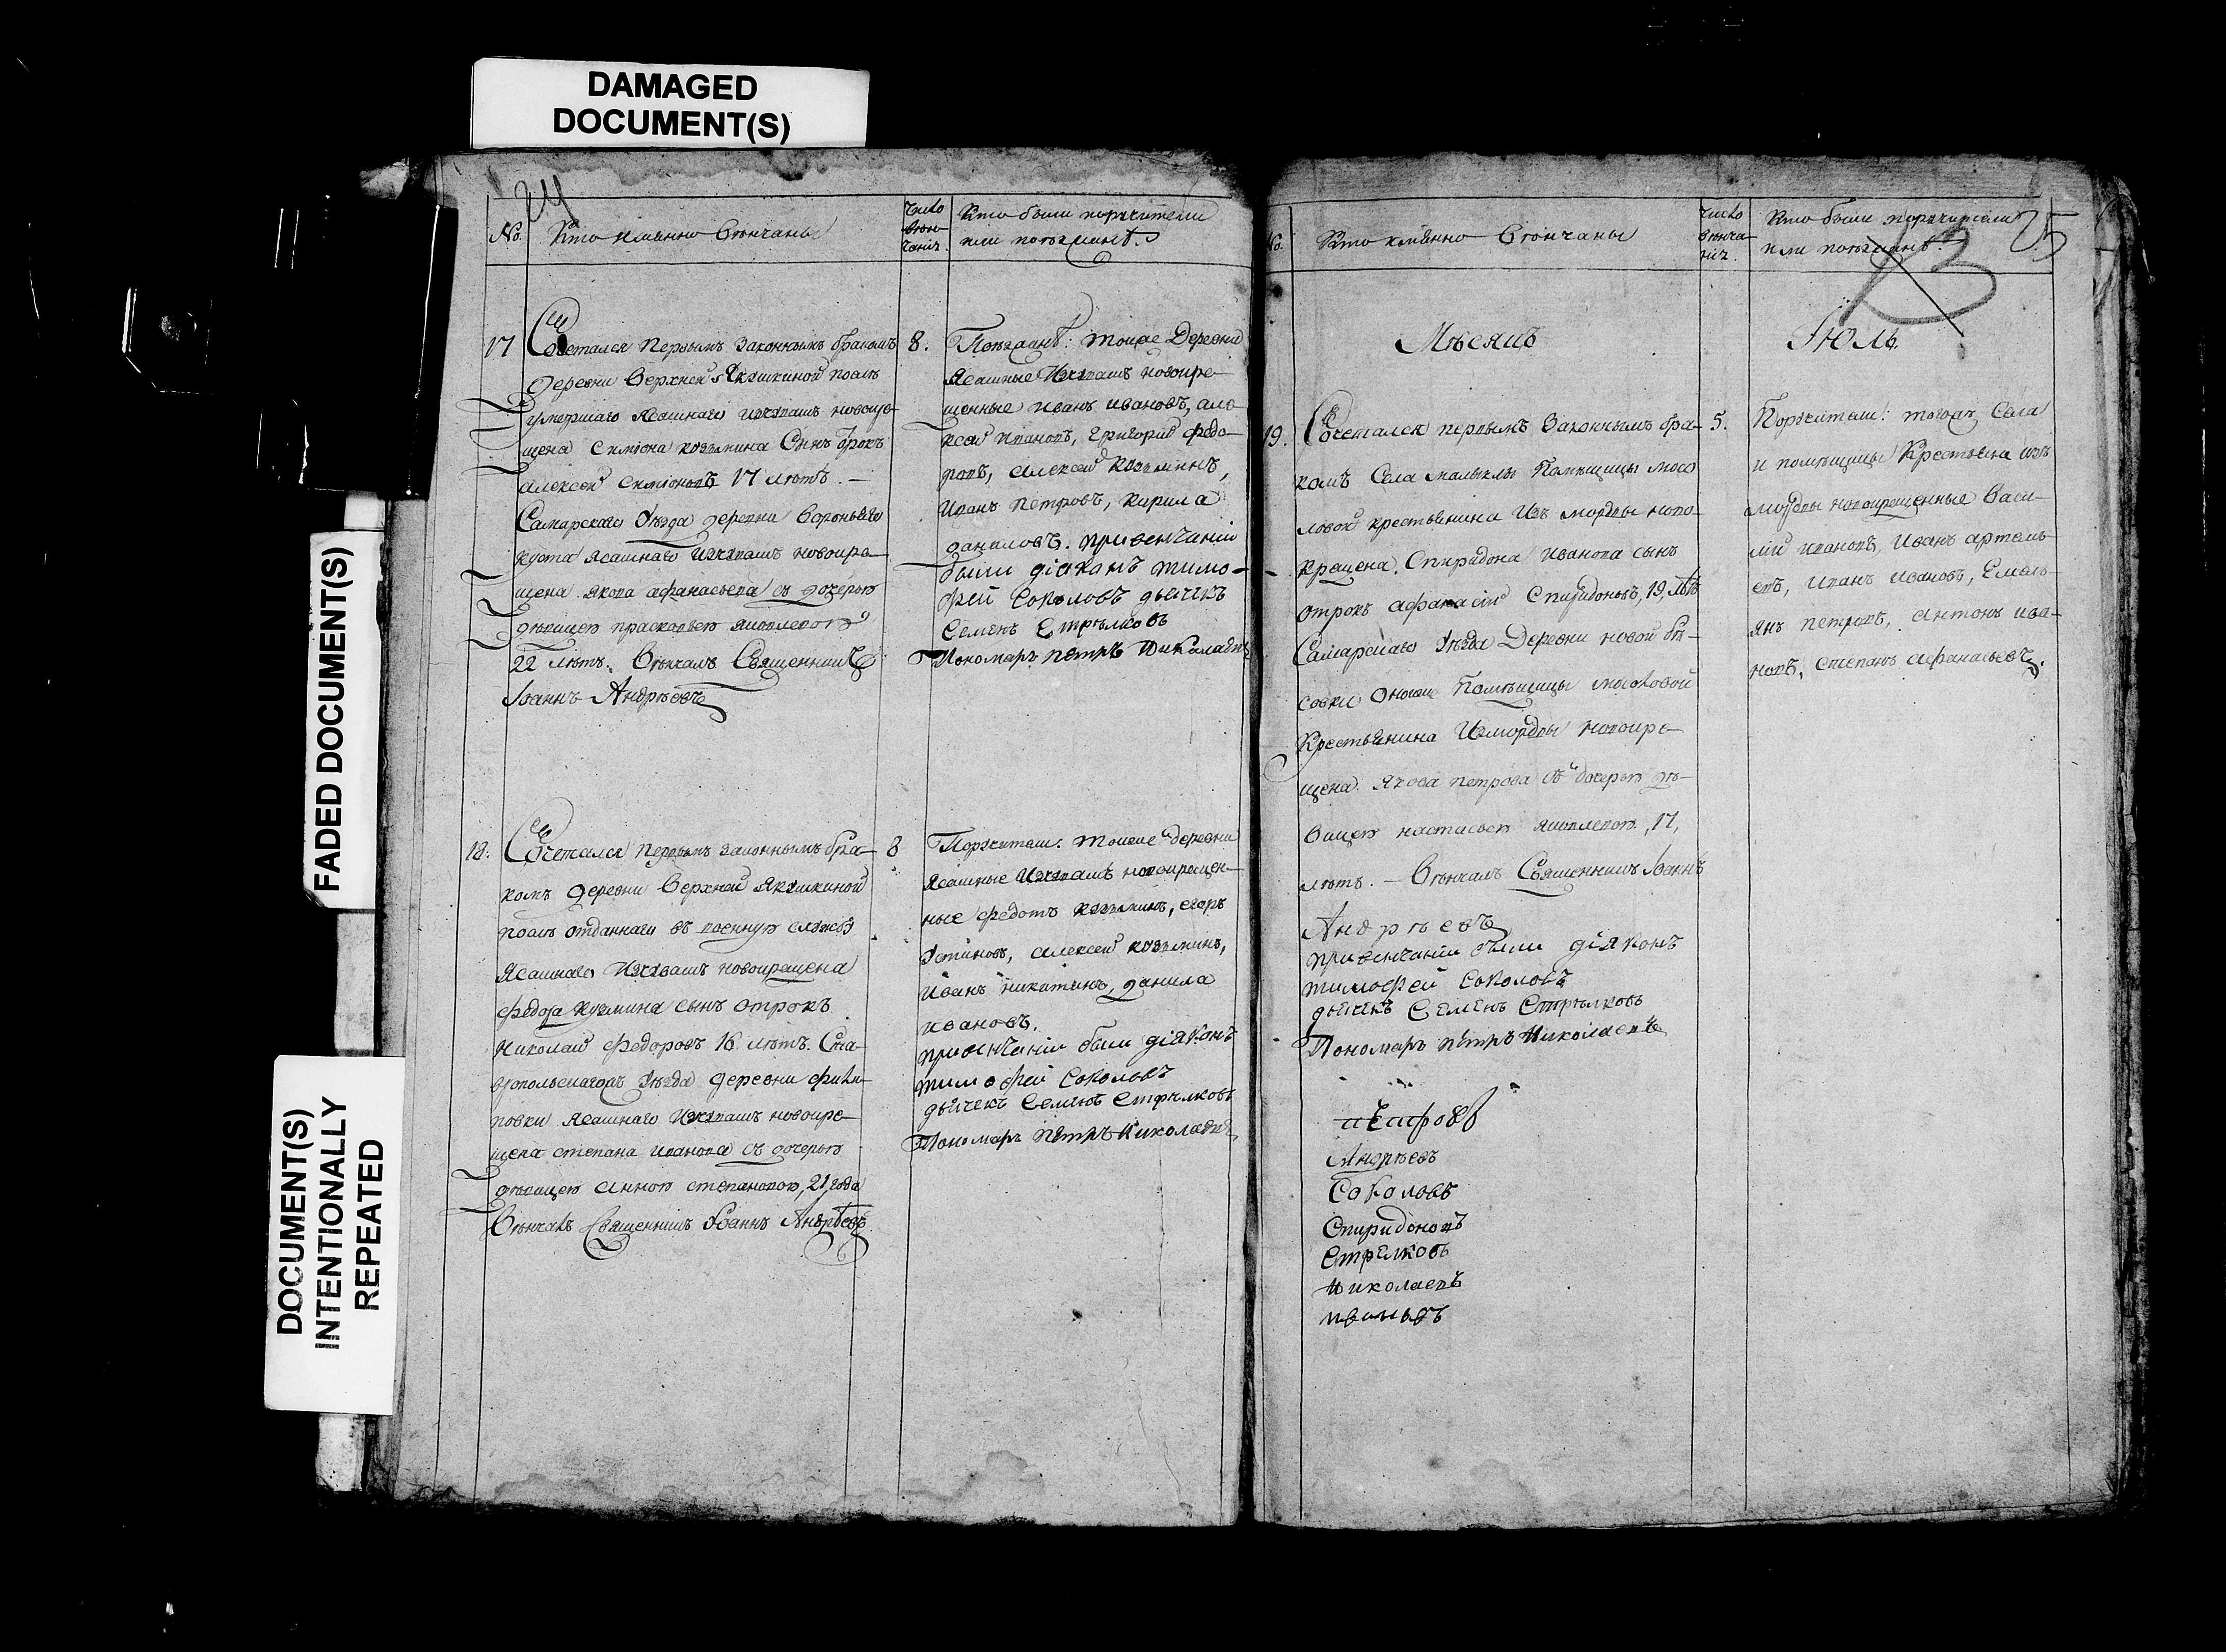 DAMAGED
DOCUMENT(S)
FADED DOCUMENT(S)
DOCUMENT(S)
INTENTIONALLY
REPEATED
24
No.
Кто имянно Вѣнчаны
Число
вѣн-
чанiя.
Кто были поручители
или поѣзжанѣ.
17
Сочетался первымъ законнымъ бракомъ
деревни Верхней Якушкиной послѣ
умершаго Ясашнаго изчувашъ новокре-
щена Симiона козьмина Сынъ отрокъ
Алексей Симiоновъ 17 лѣтъ. —
Самарскаго уѣзда деревни Вороньяго
куста Ясашнаго изчувашъ новокре-
щена Якова афанасьева съ дочерью
дѣвицею прасковьею яковлевою
22 лѣтъ. Вѣнчалъ Священникъ
Iоаннъ Андрѣевъ
8.
Поѣзжанѣ: тоиже Деревни
Ясашные Изчувашъ новокре-
щенные иванъ ивановъ, але-
ксей ивановъ, григорiй федо-
ровъ, алексей Козьминъ,
Иванъ петровъ, кирила
даниловъ. привенчанiи
были дiяконъ тимо-
фей Соколовъ дьячекъ
Семенъ Стрѣлковъ
Пономарь петръ Николаевъ
18.
Сочетался первымъ законнымъ бра-
комъ деревни Верхней Якушкиной
послѣ отданнаго въ военную службу
Ясашнаго Изчувашъ новокрещена
федора кузмина сынъ отрокъ
Николай Федоровъ 16 лѣтъ. Ста-
вропольскагожъ уѣзда деревни фили-
повки Ясашнаго Изчувашъ новокре-
щена степана иванова съ дочерью
дѣвицею анною степановою, 21 года
Вѣнчалъ Священникъ Iоаннъ Андрѣевъ.
8
Поручители: тоиже деревни
Ясашные Изчувашъ новокрещен-
ные федотъ козьминъ, егоръ
устиновъ, алексей козьминъ,
иванъ никитинъ, данила
ивановъ.
привенчанiи были дiяконъ
тимофей Соколовъ
дьячекъ Семенъ Стрѣлковъ
Пономарь петръ Николаевъ
No.
Кто имянно Вѣнчаны
Число
вѣнча-
нiя.
Кто были поручители
или поѣзжанѣ.
25
13
Мѣсяцъ
Iюль
19.
Сочетался первымъ Законнымъ бра-
комъ Села малыклы Помѣщицы мосо
ловой крестьянина изъ мордвы ново-
крещена. Спиридона иванова сынъ
отрокъ афанасiй Спиридоновъ, 19, лѣтъ
Самарскаго уѣзда Деревни новой бѣ-
совки оноиже Помѣщицы мосоловой
Крестьянина Изморды новокре-
щена. Якова петрова съ дочерью дѣ-
вицею настасьею яковлевою, 17,
лѣтъ. — Вѣнчалъ Священникъ Iоаннъ
Андрѣевъ
привенчанiи были дiяконъ
тимофей Соколовъ
дьячекъ Семенъ Стрѣлковъ
Пономарь петръ Николаевъ
5.
Поручители: тогожъ Села
и помѣщицы Крестьяна изъ
мордвы новокрещенные Васи-
лiй ивановъ, иванъ артемь-
евъ, иванъ ивановъ, Емель-
янъ петровъ, антонъ ива-
новъ, степанъ афанасьевъ.
петровъ
Андрѣевъ
Соколовъ
Спиридоновъ
Стрелковъ
Николаевъ
ивановъ